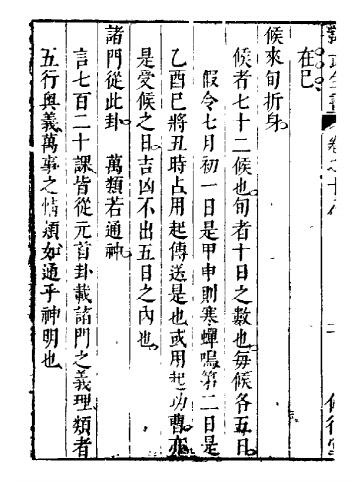 在巳
候來旬折身
候者七十二候也旬者十日之數也每候各五日
假令七月初一日是甲申則寒蟬鳴第二日是
乙酉巳將丑時占用起傳送是也或用起功曹亦
是受候之日吉凶不出五日之內也
諸門從此卦　萬類若通神
言七百二十課皆從元首卦載諸門之義理類者
五行與義萬事之情類如通乎神明也